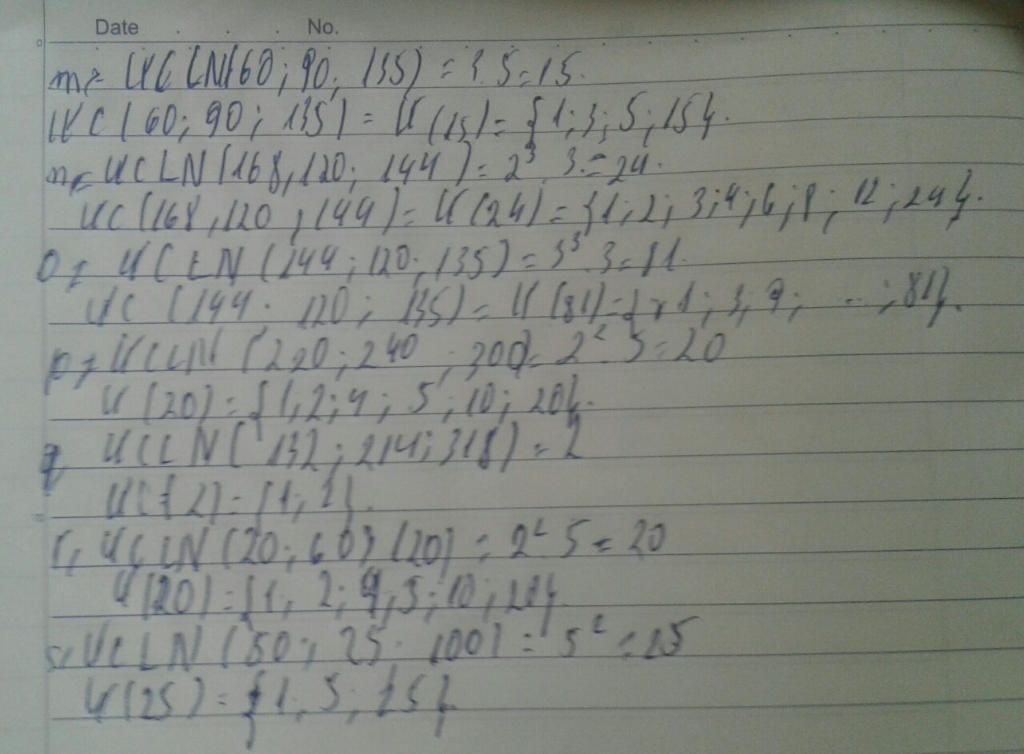 Date . . . No.
m, ƯCLN(60; 90; 135) = 3.5=15.
ƯC(60; 90; 135) = Ư(15) = {1; 3; 5; 15}.
n, ƯCLN(168, 120; 144) = 2³.3.=24.
ƯC(168, 120, 144) = Ư(24) = {1; 2; 3; 4; 6; 8; 12; 24}.
O, ƯCLN(144; 120; 135) = 3³.3=81.
ƯC(144. 120; 135) = Ư(81) = {1; 3; 9; ...; 81}.
p, ƯCLN(220; 240; 300) = 2².5=20
Ư(20) = {1, 2; 4; 5; 10; 20}.
q, ƯCLN(132; 214; 318) = 2
ƯC(2) = {1; 2}.
r, ƯCLN(20; 60) (20) = 2².5 = 20
Ư(20) = {1, 2; 4, 5; 10; 20}.
s, ƯCLN(50; 25. 100) = 5² = 25
Ư(25) = {1; 5; 25}